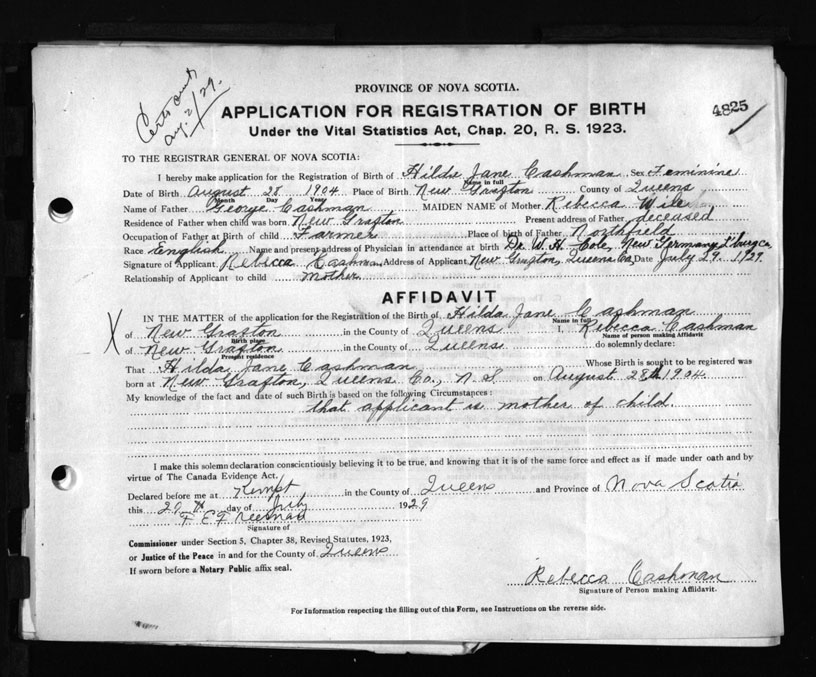 Certs sent
Aug. 2/29.
PROVINCE OF NOVA SCOTIA.
4825
APPLICATION FOR REGISTRATION OF BIRTH
Under the Vital Statistics Act, Chap. 20, R. S. 1923.
TO THE REGISTRAR GENERAL OF NOVA SCOTIA:
I hereby make application for the Registration of Birth of Hilda Jane Cashman Sex Feminine
Name in full
Date of Birth August 28 1904 Place of Birth New Grafton County of Queens
Month Day Year
Name of Father George Cashman MAIDEN NAME of Mother Rebecca Wile
Residence of Father when child was born New Grafton Present address of Father deceased
Occupation of Father at Birth of child Farmer Place of birth of Father Northfield
Race English Name and present address of Physician in attendance at birth Dr. W. H. Cole, New Germany, L'burg Co.
Signature of Applicant Rebecca Cashman Address of Applicant New Grafton, Queens Co. Date July 29. 1929.
Relationship of Applicant to child mother
AFFIDAVIT
IN THE MATTER of the application for the Registration of the Birth of Hilda Jane Cashman
Name in full
of New Grafton in the County of Queens I, Rebecca Cashman
Birth place Name of person making Affidavit
of New Grafton in the County of Queens do solemnly declare:
Present residence
That Hilda Jane Cashman Whose Birth is sought to be registered was
born at New Grafton, Queens Co., N. S on August 28th 1904
My knowledge of the fact and date of such Birth is based on the following Circumstances:
that applicant is mother of child.
I make this solemn declaration conscientiously believing it to be true, and knowing that it is of the same force and effect as if made under oath and by
virtue of The Canada Evidence Act.
Declared before me at Kempt in the County of Queens and Province of Nova Scotia
this 29th day of July 1929
F E Freeman
Signature of
Commissioner under Section 5, Chapter 38, Revised Statutes, 1923,
or Justice of the Peace in and for the County of Queens
If sworn before a Notary Public affix seal.
Rebecca Cashman
Signature of Person making Affidavit.
For Information respecting the filling out of this Form, see Instructions on the reverse side.